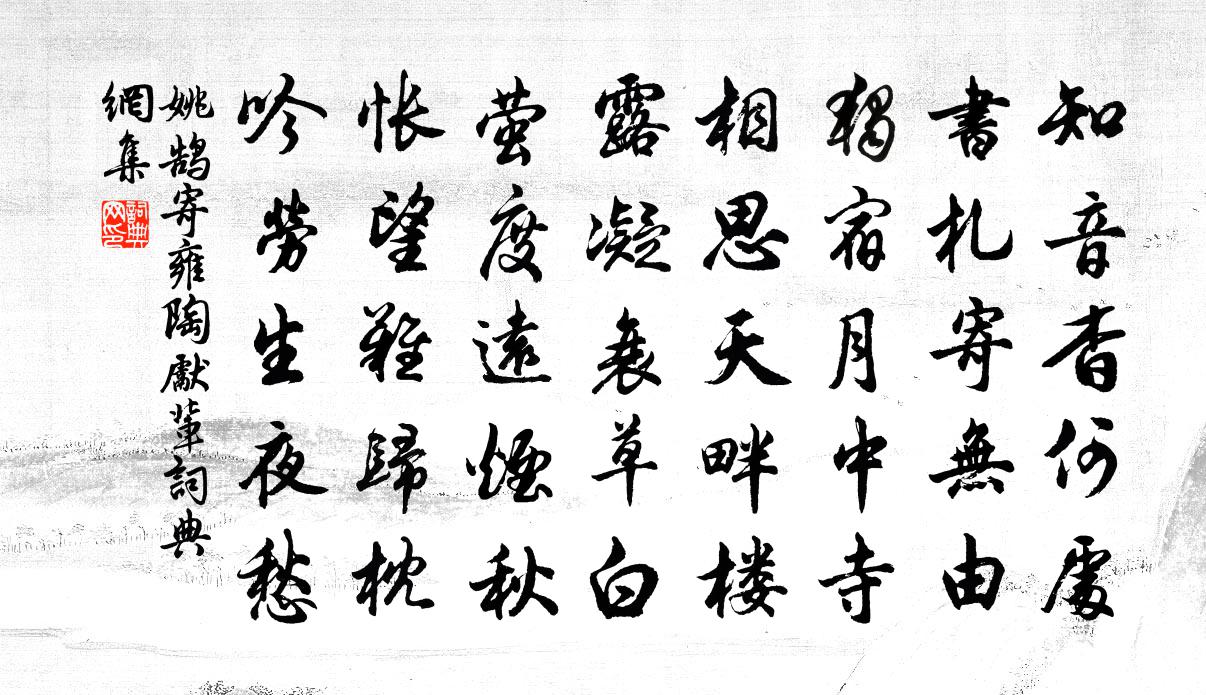 知音杳何處
書札寄無由
獨宿月中寺
相思天畔楼
露凝衰草白
萤度遠煙秋
怅望難歸枕
吟勞生夜愁
姚鵠寄雍陶獻輩詞典
網集
詞典
网印